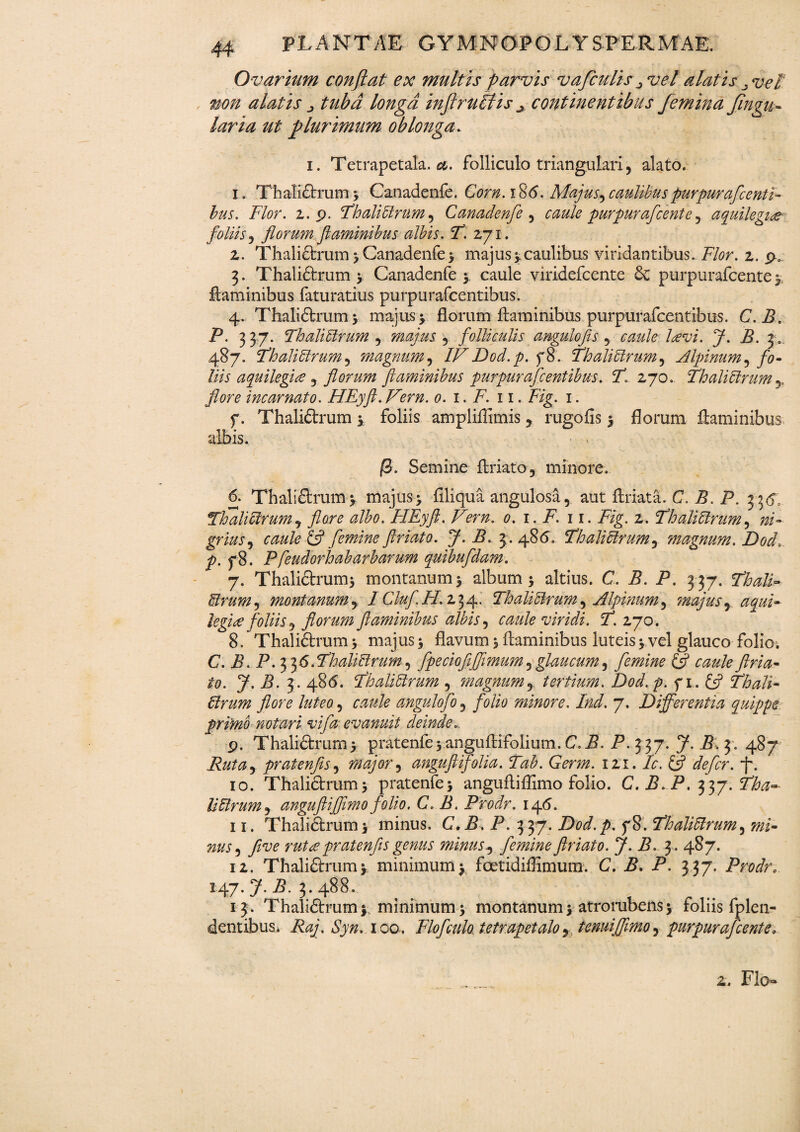 44 PLANTAE GYMNOPOLYSPERMAE.
Ovarium conſtat ex multis parvis vaſculis, vel alatis, vel
non alatis, tubâ longâ inſtructis, continentibus ſemina ſingu-
laria ut plurimum oblonga.
1. Tetrapetala. α. folliculo triangulari, alato.
1. Thalictrum; Canadenſe. Corn. 186. Majus, caulibus purpuraſcenti-
bus. Flor. 2. 9. Thalictrum, Canadenſe, caule purpuraſcente, aquilegiæ
foliis, florum ſtaminibus albis. T. 271.
2. Thalictrum; Canadenſe; majus; caulibus viridantibus. Flor. 2. 9.
3. Thalictrum; Canadenſe; caule virideſcente & purpuraſcente;
ſtaminibus ſaturatius purpuraſcentibus.
4. Thalictrum; majus; florum ſtaminibus purpuraſcentibus. C. B.
P. 337. Thalictrum, majus, folliculis anguloſis, caule lævi. J. B. 3.
487. Thalictrum, magnum, IV Dod. p. 58. Thalictrum, Alpinum, fo-
liis aquilegiæ, florum ſtaminibus purpuraſcentibus. T. 270. Thalictrum,
flore incarnato. HEyſt. Vern. o. 1. F. 11. Fig. 1.
5. Thalictrum; foliis ampliſſimis, rugoſis; florum ſtaminibus
albis.
β. Semine ſtriato, minore.
6. Thalictrum; majus; ſiliquâ anguloſâ, aut ſtriatâ. C. B. P. 336.
Thalictrum, flore albo. HEyſt. Vern. o. 1. F. 11. Fig. 2. Thalictrum, ni-
grius, caule & ſemine ſtriato. J. B. 3. 486. Thalictrum, magnum. Dod.
p. 58. Pſeudorhabarbarum quibuſdam.
7. Thalictrum; montanum; album; altius. C. B. P. 337. Thali-
ctrum, montanum, I Cluſ. H. 234. Thalictrum, Alpinum, majus, aqui-
legiæ foliis, florum ſtaminibus albis, caule viridi. T. 270.
8. Thalictrum; majus; flavum; ſtaminibus luteis; vel glauco folio.
C. B. P. 336. Thalictrum, ſpecioſiſſimum, glaucum, ſemine & caule ſtria-
to. J. B. 3. 486. Thalictrum, magnum, tertium. Dod. p. 51. & Thali-
ctrum flore luteo, caule anguloſo, folio minore. Ind. 7. Differentia quippe
primò notari viſa evanuit deinde.
9. Thalictrum; pratenſe; anguſtifolium. C. B. P. 337. J. B. 3. 487
Ruta, pratenſis, major, anguſtifolia. Tab. Germ. 121. Ic. & deſcr. †.
10. Thalictrum; pratenſe; anguſtiſſimo folio. C. B. P. 337. Tha-
lictrum, anguſtiſſimo folio. C. B. Prodr. 146.
11. Thalictrum; minus. C. B. P. 337. Dod. p. 58. Thalictrum, mi-
nus, ſive rutæ pratenſis genus minus, ſemine ſtriato. J. B. 3. 487.
12. Thalictrum; minimum; fœtidiſſimum. C. B. P. 337. Prodr.
147. J. B. 3. 488.
13. Thalictrum; minimum; montanum; atrorubens; foliis ſplen-
dentibus. Raj. Syn. 100. Floſculo tetrapetalo, tenuiſſimo, purpuraſcente.
2. Flo-